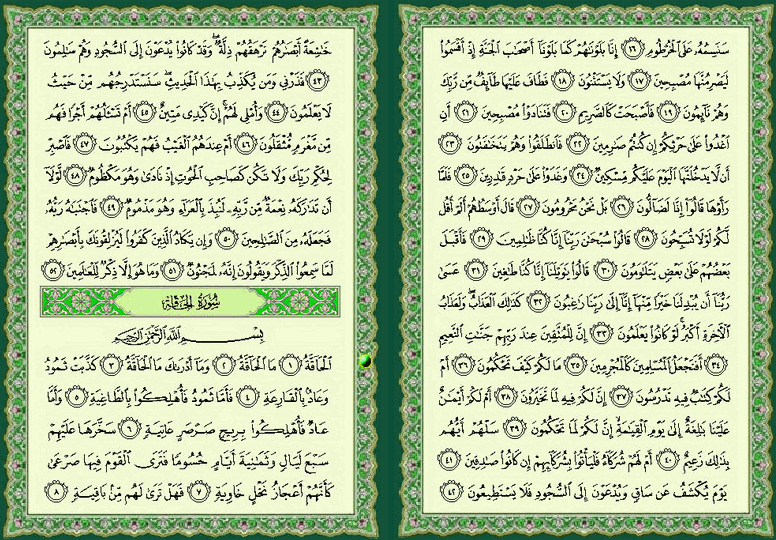 سَنَسِمُهُۥ عَلَى ٱلْخُرْطُومِ ١٦ إِنَّا بَلَوْنَٰهُمْ كَمَا بَلَوْنَآ أَصْحَٰبَ ٱلْجَنَّةِ إِذْ أَقْسَمُوا۟
لَيَصْرِمُنَّهَا مُصْبِحِينَ ١٧ وَلَا يَسْتَثْنُونَ ١٨ فَطَافَ عَلَيْهَا طَآئِفٌ مِّن رَّبِّكَ
وَهُمْ نَآئِمُونَ ١٩ فَأَصْبَحَتْ كَٱلصَّرِيمِ ٢٠ فَتَنَادَوْا۟ مُصْبِحِينَ ٢١ أَنِ
ٱغْدُوا۟ عَلَىٰ حَرْثِكُمْ إِن كُنتُمْ صَٰرِمِينَ ٢٢ فَٱنطَلَقُوا۟ وَهُمْ يَتَخَٰفَتُونَ ٢٣
أَن لَّا يَدْخُلَنَّهَا ٱلْيَوْمَ عَلَيْكُم مِّسْكِينٌ ٢٤ وَغَدَوْا۟ عَلَىٰ حَرْدٍ قَٰدِرِينَ ٢٥ فَلَمَّا
رَأَوْهَا قَالُوٓا۟ إِنَّا لَضَآلُّونَ ٢٦ بَلْ نَحْنُ مَحْرُومُونَ ٢٧ قَالَ أَوْسَطُهُمْ أَلَمْ أَقُل
لَّكُمْ لَوْلَا تُسَبِّحُونَ ٢٨ قَالُوا۟ سُبْحَٰنَ رَبِّنَآ إِنَّا كُنَّا ظَٰلِمِينَ ٢٩ فَأَقْبَلَ
بَعْضُهُمْ عَلَىٰ بَعْضٍ يَتَلَٰوَمُونَ ٣٠ قَالُوا۟ يَٰوَيْلَنَآ إِنَّا كُنَّا طَٰغِينَ ٣١ عَسَىٰ
رَبُّنَآ أَن يُبْدِلَنَا خَيْرًا مِّنْهَآ إِنَّآ إِلَىٰ رَبِّنَا رَٰغِبُونَ ٣٢ كَذَٰلِكَ ٱلْعَذَابُ وَلَعَذَابُ
ٱلْءَاخِرَةِ أَكْبَرُ لَوْ كَانُوا۟ يَعْلَمُونَ ٣٣ إِنَّ لِلْمُتَّقِينَ عِندَ رَبِّهِمْ جَنَّٰتِ ٱلنَّعِيمِ
٣٤ أَفَنَجْعَلُ ٱلْمُسْلِمِينَ كَٱلْمُجْرِمِينَ ٣٥ مَا لَكُمْ كَيْفَ تَحْكُمُونَ ٣٦ أَمْ
لَكُمْ كِتَٰبٌ فِيهِ تَدْرُسُونَ ٣٧ إِنَّ لَكُمْ فِيهِ لَمَا تَخَيَّرُونَ ٣٨ أَمْ لَكُمْ أَيْمَٰنٌ
عَلَيْنَا بَٰلِغَةٌ إِلَىٰ يَوْمِ ٱلْقِيَٰمَةِ إِنَّ لَكُمْ لَمَا تَحْكُمُونَ ٣٩ سَلْهُمْ أَيُّهُم
بِذَٰلِكَ زَعِيمٌ ٤٠ أَمْ لَهُمْ شُرَكَآءُ فَلْيَأْتُوا۟ بِشُرَكَآئِهِمْ إِن كَانُوا۟ صَٰدِقِينَ ٤١
يَوْمَ يُكْشَفُ عَن سَاقٍ وَيُدْعَوْنَ إِلَى ٱلسُّجُودِ فَلَا يَسْتَطِيعُونَ ٤٢
خَٰشِعَةً أَبْصَٰرُهُمْ تَرْهَقُهُمْ ذِلَّةٌ وَقَدْ كَانُوا۟ يُدْعَوْنَ إِلَى ٱلسُّجُودِ وَهُمْ سَٰلِمُونَ
٤٣ فَذَرْنِى وَمَن يُكَذِّبُ بِهَٰذَا ٱلْحَدِيثِ سَنَسْتَدْرِجُهُم مِّنْ حَيْثُ
لَا يَعْلَمُونَ ٤٤ وَأُمْلِى لَهُمْ إِنَّ كَيْدِى مَتِينٌ ٤٥ أَمْ تَسْـَٔلُهُمْ أَجْرًا فَهُم
مِّن مَّغْرَمٍ مُّثْقَلُونَ ٤٦ أَمْ عِندَهُمُ ٱلْغَيْبُ فَهُمْ يَكْتُبُونَ ٤٧ فَٱصْبِرْ
لِحُكْمِ رَبِّكَ وَلَا تَكُن كَصَاحِبِ ٱلْحُوتِ إِذْ نَادَىٰ وَهُوَ مَكْظُومٌ ٤٨ لَّوْلَآ
أَن تَدَٰرَكَهُۥ نِعْمَةٌ مِّن رَّبِّهِۦ لَنُبِذَ بِٱلْعَرَآءِ وَهُوَ مَذْمُومٌ ٤٩ فَٱجْتَبَٰهُ رَبُّهُۥ
فَجَعَلَهُۥ مِنَ ٱلصَّٰلِحِينَ ٥٠ وَإِن يَكَادُ ٱلَّذِينَ كَفَرُوا۟ لَيُزْلِقُونَكَ بِأَبْصَٰرِهِمْ
لَمَّا سَمِعُوا۟ ٱلذِّكْرَ وَيَقُولُونَ إِنَّهُۥ لَمَجْنُونٌ ٥١ وَمَا هُوَ إِلَّا ذِكْرٌ لِّلْعَٰلَمِينَ ٥٢
سُورَةُ الحَاقَّة
بِسْمِ ٱللَّهِ ٱلرَّحْمَٰنِ ٱلرَّحِيمِ
ٱلْحَآقَّةُ ١ مَا ٱلْحَآقَّةُ ٢ وَمَآ أَدْرَىٰكَ مَا ٱلْحَآقَّةُ ٣ كَذَّبَتْ ثَمُودُ
وَعَادٌۢ بِٱلْقَارِعَةِ ٤ فَأَمَّا ثَمُودُ فَأُهْلِكُوا۟ بِٱلطَّاغِيَةِ ٥ وَأَمَّا
عَادٌ فَأُهْلِكُوا۟ بِرِيحٍ صَرْصَرٍ عَاتِيَةٍ ٦ سَخَّرَهَا عَلَيْهِمْ
سَبْعَ لَيَالٍ وَثَمَٰنِيَةَ أَيَّامٍ حُسُومًا فَتَرَى ٱلْقَوْمَ فِيهَا صَرْعَىٰ
كَأَنَّهُمْ أَعْجَازُ نَخْلٍ خَاوِيَةٍ ٧ فَهَلْ تَرَىٰ لَهُم مِّنۢ بَاقِيَةٍ ٨